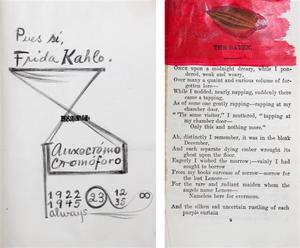 Pues sí,
Frida Kahlo.
Auxocromo
Cromóforo
1922 23 12 ∞
1945 35
always
THE RAVEN.
Once upon a midnight dreary, while I pon-
dered, weak and weary,
Over many a quaint and curious volume of for-
gotten lore—
While I nodded, nearly napping, suddenly there
came a tapping,
As of some one gently rapping—rapping at my
chamber door,
"'Tis some visitor," I muttered, "tapping at
my chamber door—
Only this and nothing more."
Ah, distinctly I remember, it was in the bleak
December,
And each separate dying ember wrought its
ghost upon the floor.
Eagerly I wished the morrow;—vainly I had
sought to borrow
From my books surcease of sorrow—sorrow for
the lost Lenore—
For the rare and radiant maiden whom the
angels name Lenore—
Nameless here for evermore.
And the silken sad uncertain rustling of each
purple curtain
9